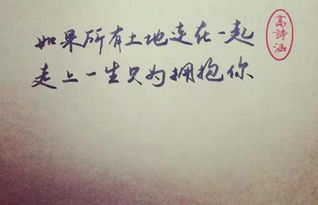 如果所有土地走在一起
走上一生只为拥抱你
高詩涵